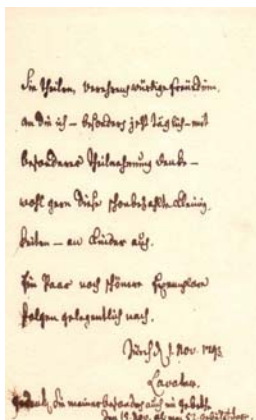 Sie theilen, verehrenswürdige Freündin,
an die ich – besonders jetzt täglich – mit
besonderer Theilnehmung denke –
wohl gern diese schonbezahlte Kleinig-
keiten – an Kinder aus.
Ein Paar noch schönere Exemplare
folgen gelegentlich nach.
Zürich, d. 1. Nov. 1793.
Lavater.
Sie meiner besonders auch im Gebeth
den 15. Nov. als mei